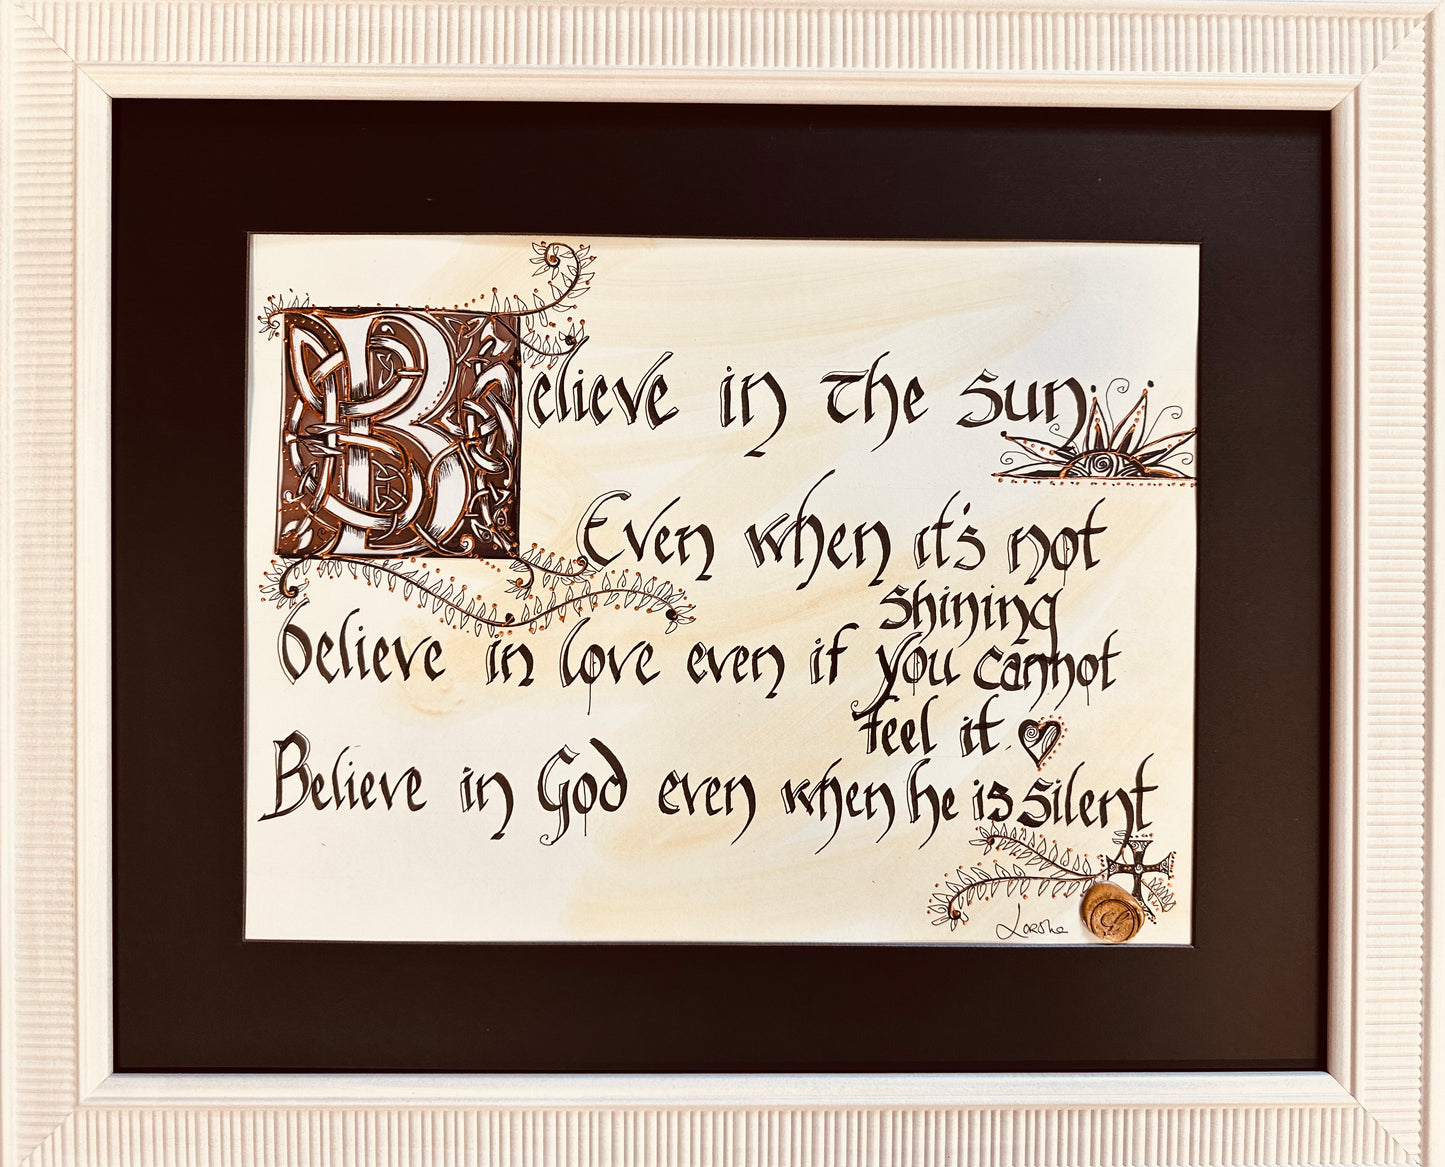 Believe in the sun
Even when it's not
shining
believe in love even if you cannot
feel it
Believe in God even when he is silent